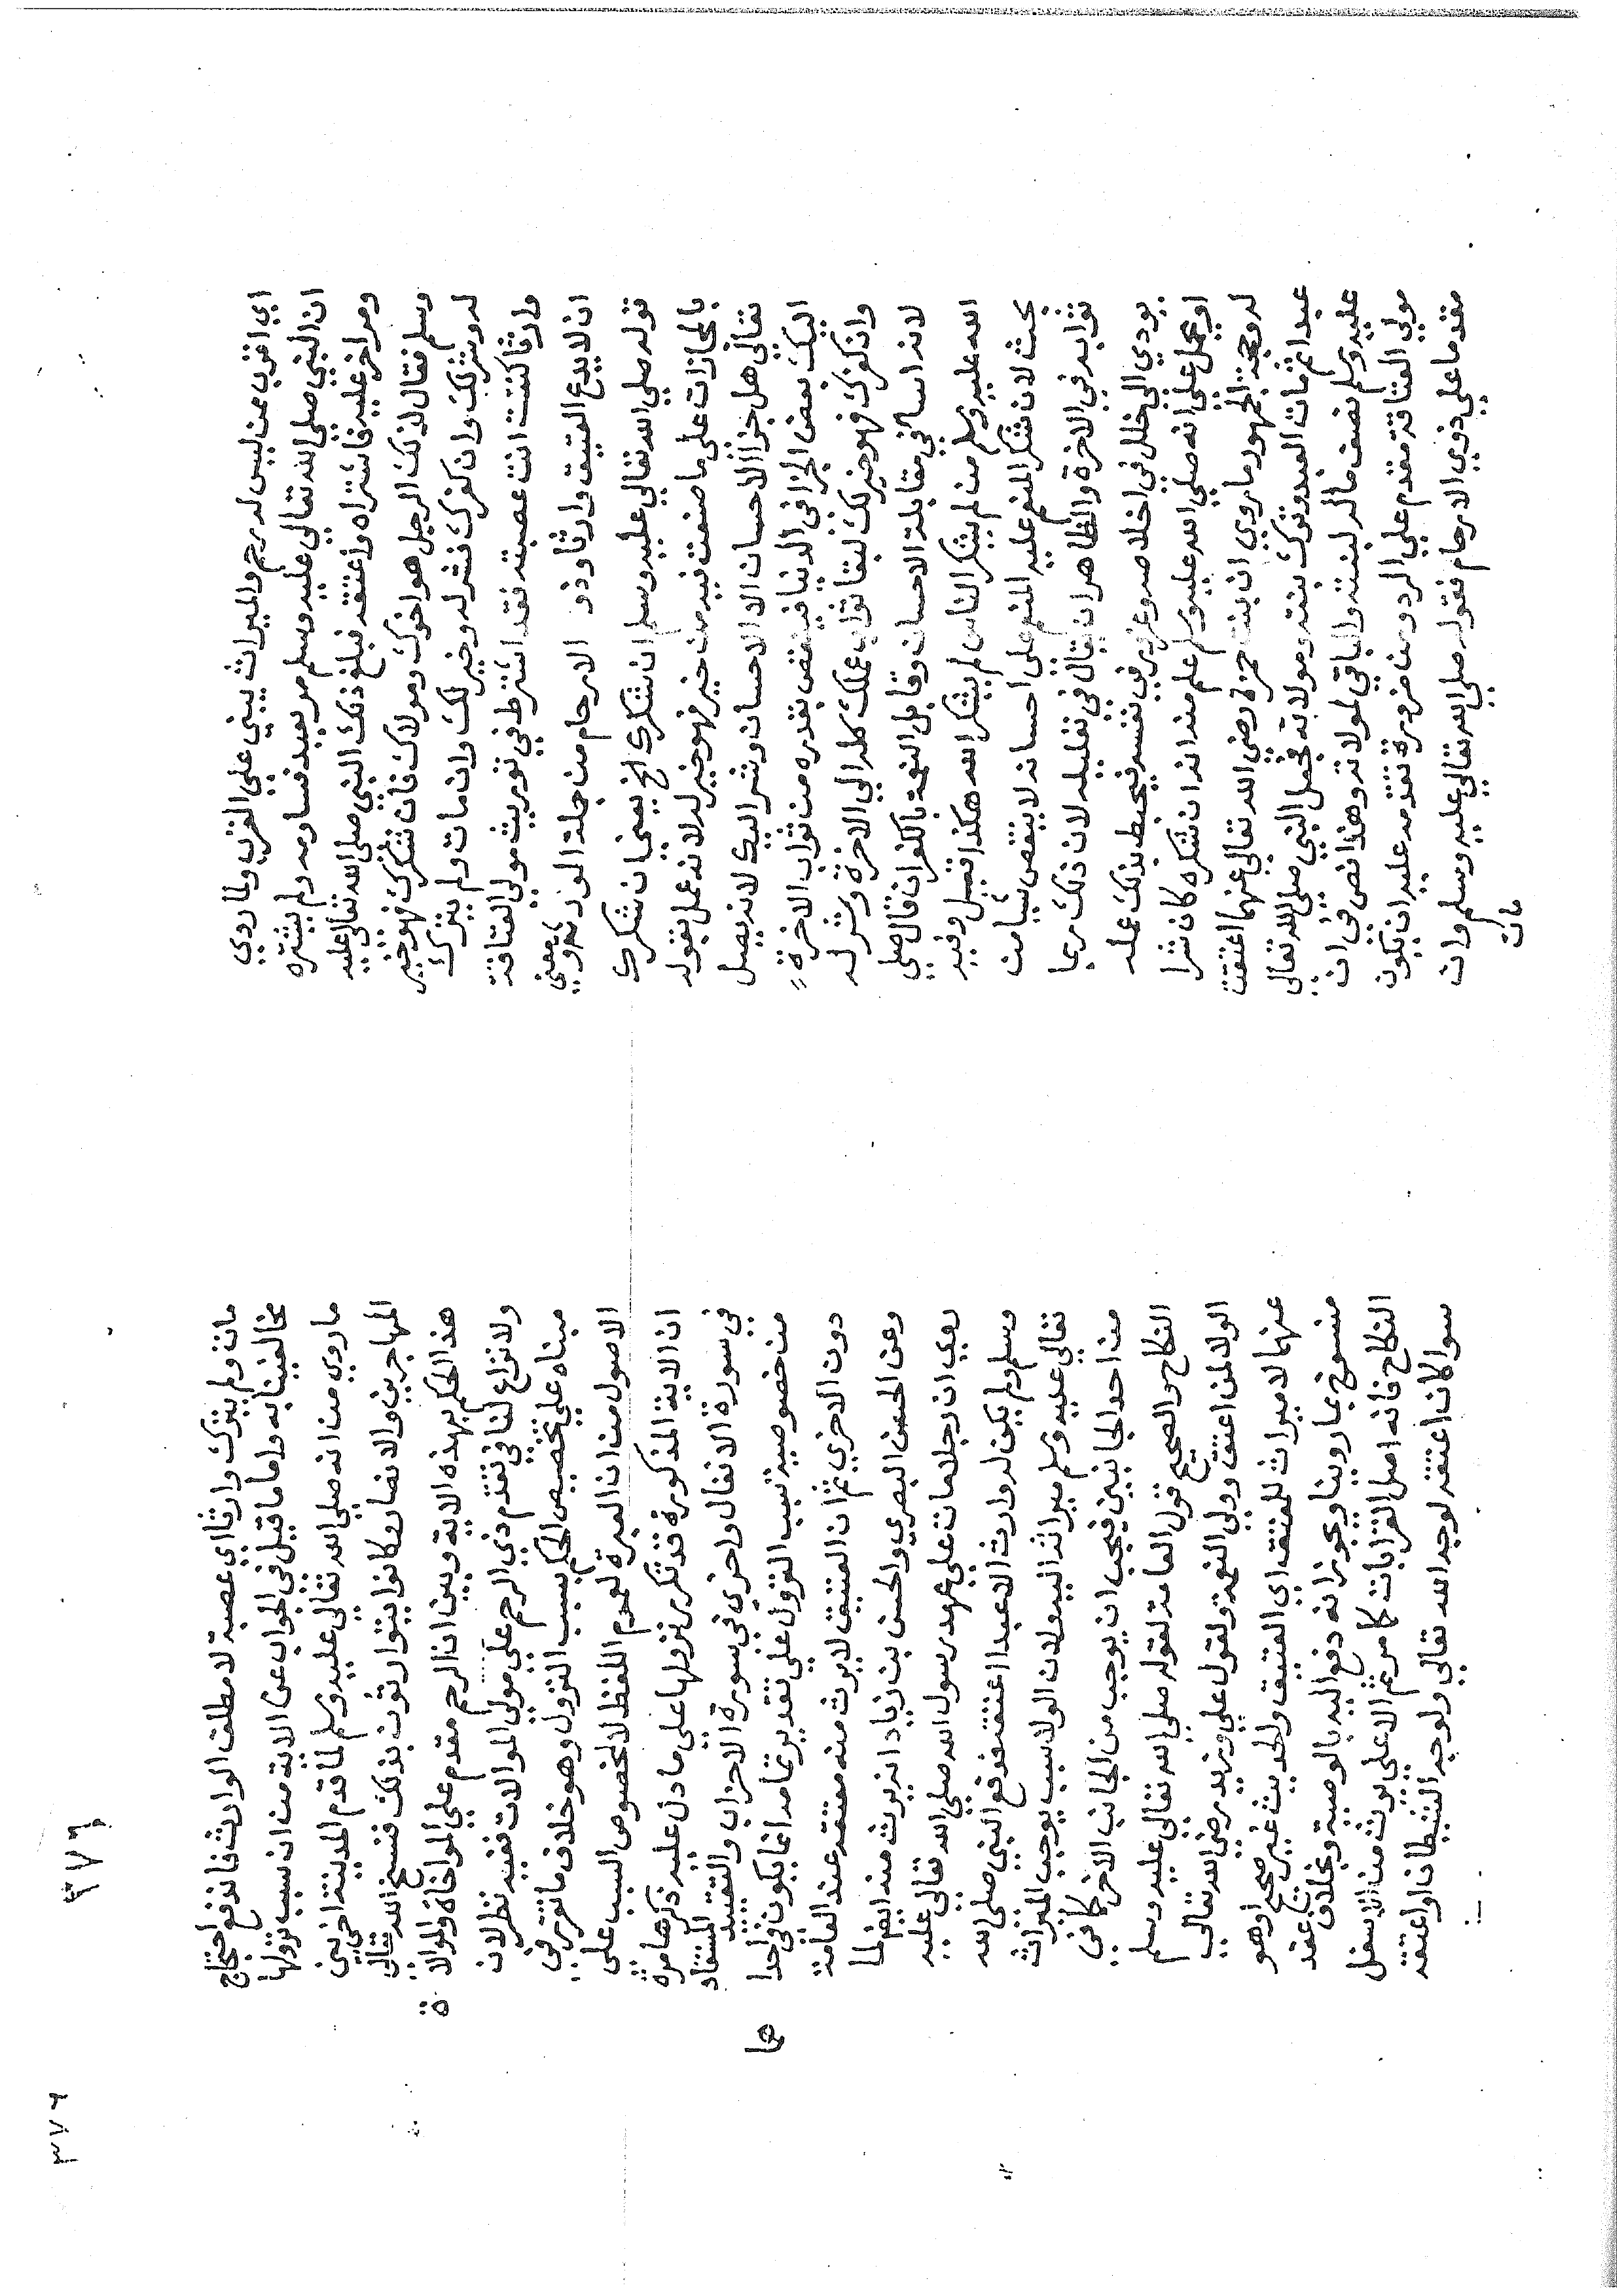 اي اقرب ممن ليس له رحم والميراث يبني علي القرب ولما روي
ان النبي صلي الله تعالي عليه وسلم مر بعبد فساومه ولم يشتره
ومر اخر عليه فاشتراه واعتقه فبلغ ذلك النبي صلي الله تعالي عليه
وسلم فقال لذلك الرجل هو اخوك ومولاك فان شكرك فهو خير
له وشر لك وان كفرك فشر له وخير لك وان مات ولم يترك
وارثا كنت انت عصبته فقد اشترط في توريث مولي العتاقة
ان لا يدع العتيق وارثا وذو الارحام من جملة الورثة ومعني
قوله صلي الله تعالي عليه وسلم ان شكرك الخ يعني ان شكرك
بالمجازات علي ما صنعت فيه من خير فهو خير له لانه عمل بقوله
تعالي هل جزا الاحسان الا الاحسان وشر اليك لانه يصل
اليك بعض الجزا في الدنيا فينقص بقدره من ثواب الاخرة
وان كفرك فهو خير لك لبقا ثواب عملك كله الي الاخرة وشر له
لانه اسا في مقابلة الاحسان وقابل النعمة بالكفران قال صلي
الله عليه وسلم من لم يشكر الناس لم يشكر الله هكذا قيل وفيه
بحث لان شكر المنعم عليه المنعم علي احسانه لا ينقص شيا من
ثوابه في الاخرة والظاهر ان يقال في تعليله لان ذلك ربما
يودي الي خلل في اخلاصه وغرور في نفسه فيحبط بذلك عمله
او يحمل علي انه صلي الله عليه وسلم علم منه انه ان شكره كان شرا
له وحجة الجمهور ما روي ان بنت حمزة رضي الله تعالي عنهما اعتقت
عبدا ثم مات العبد وترك بنته ومولاته فجعل النبي صلي الله تعالي
عليه وسلم نصف ماله لبنته والباقي لمولاته وهذا نص في ان
مولي العتاقة مقدم علي الرد ومن ضرورة تقدمه عليه ان يكون
مقدما علي ذوي الارحام فقوله صلي الله تعالي عليه وسلم وان
مات
٣٧٦
٣٧٦
مات ولم يترك وارثا اي عصبة لا مطلق الوارث فاندفع احتجاج
مخالفينا به واما ما قيل في الجواب عن الاية من ان سبب نزولها
ما روي من انه صلي الله تعالي عليه وسلم لما قدم المدينة اخي بين
المهاجرين والانصار وكانوا يتوارثون بذلك فنسخ الله تعالي
هذا الحكم بهذه الاية وبين ان الرحم مقدم علي المواخاة والموالاة
ولا نزاع لنا في تقدم ذي الرحم علي مولي الموالات ففيه نظر لان
مبناه علي تخصيص الحكم بسبب النزول وهو خلاف ما تقرر في
الاصول من ان العبرة لعموم اللفظ لا لخصوص السبب علي
ان الاية المذكورة قد تكرر نزولها علي ما دل عليه ذكرها مرة
في سورة الانفال واخري في سورة الاحزاب والتقييد المستفاد
من خصوصية سبب النزول علي تقدير تمامه انما يكون في احداهما
دون الاخري ثم ان العتيق لا يرث منه معتقه عند العامة
وعن الحسن البصري والحسن بن زياد انه يرث منه ايضا لما
روي ان رجلا مات علي عهد رسول الله صلي الله تعالي عليه
وسلم ولم يكن له وارث الا عبدا اعتقه فدفع النبي صلي الله
تعالي عليه وسلم ميراثه اليه ولان الولا سبب يوجب الميراث
من احد الجانبين فيجب ان يوجب من الجانب الاخر كما في
النكاح والصحيح قول العامة لقوله صلي الله تعالي عليه وسلم
الولا لمن اعتق وولي النعمة ولقول علي وزيد رضي الله تعالي
عنهما لا ميراث للمعتق اي العتيق والحديث غير صحيح او هو
منسوخ بما روينا ويجوز انه دفع اليه بالوصية وبخلاف عقد
النكاح فانه اصل القرابات كما مر ثم الاعلي يرث من الاسفل
سوا كان اعتقه لوجه الله تعالي ولوجه الشيطان او اعتقه